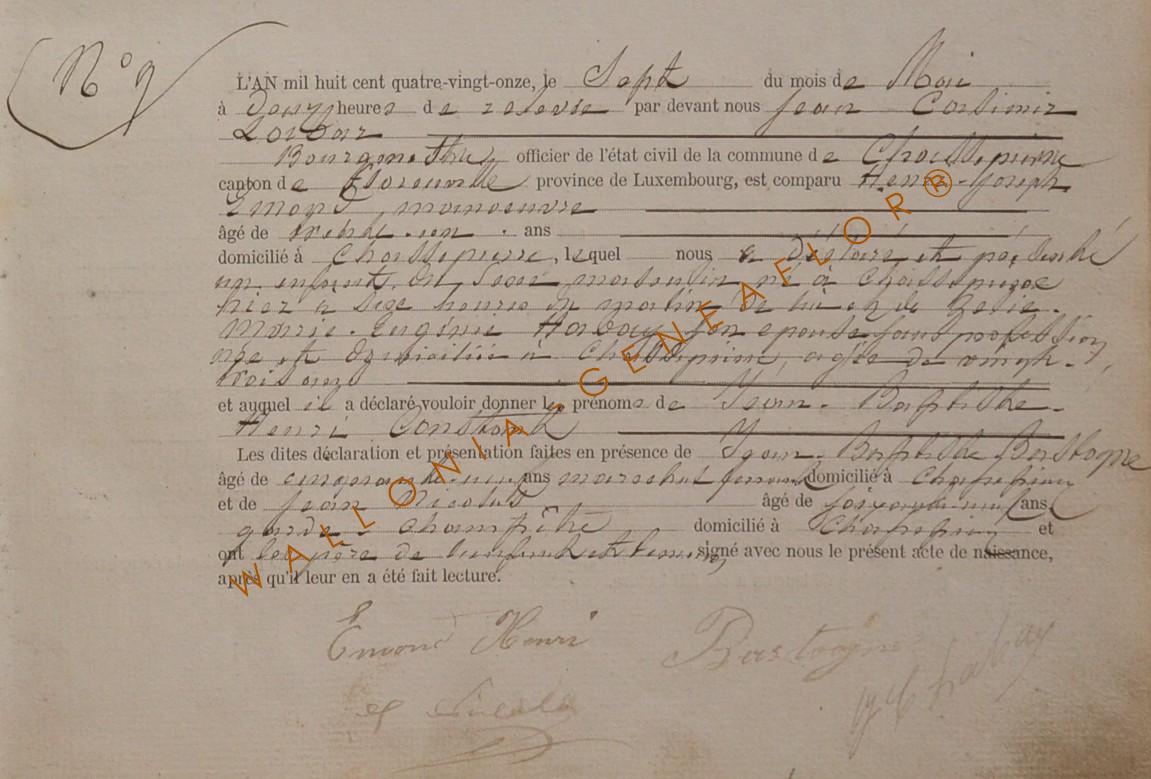 N° 9
L'AN mil huit cent quatre-vingt-onze, le Sept du mois de Mai
à deux heures de relevée par devant nous Jean Casimir
Bourgmestre officier de l'état civil de la commune de Chassepierre
canton de Florenville province de Luxembourg, est comparu Henri-Joseph
Emond, manoeuvre
âgé de trente-un ans
domicilié à Chassepierre, lequel nous a déclaré et présenté
un enfant du sexe masculin né à Chassepierre
hier à six heures du matin de lui et de
Marie-Eugénie son épouse sans profession
née et domiciliée à Chassepierre, agée de vingt-
trois ans
et auquel il a déclaré vouloir donner les prénoms de Jean-Baptiste-
Henri Constant
Les dites déclaration et présentation faites en présence de Jean-Baptiste Bastogne
âgé de cinquante ans marechal ferrant domicilié à Chassepierre
et de Jean Nicolas âgé de ans,
garde-champêtre domicilié à Chassepierre et
ont le père de l'enfant et témoins signé avec nous le présent acte de naissance,
après qu'il leur en a été fait lecture.
Emond Henri
Bastogne
WALLONIA-GENEAFLOR®